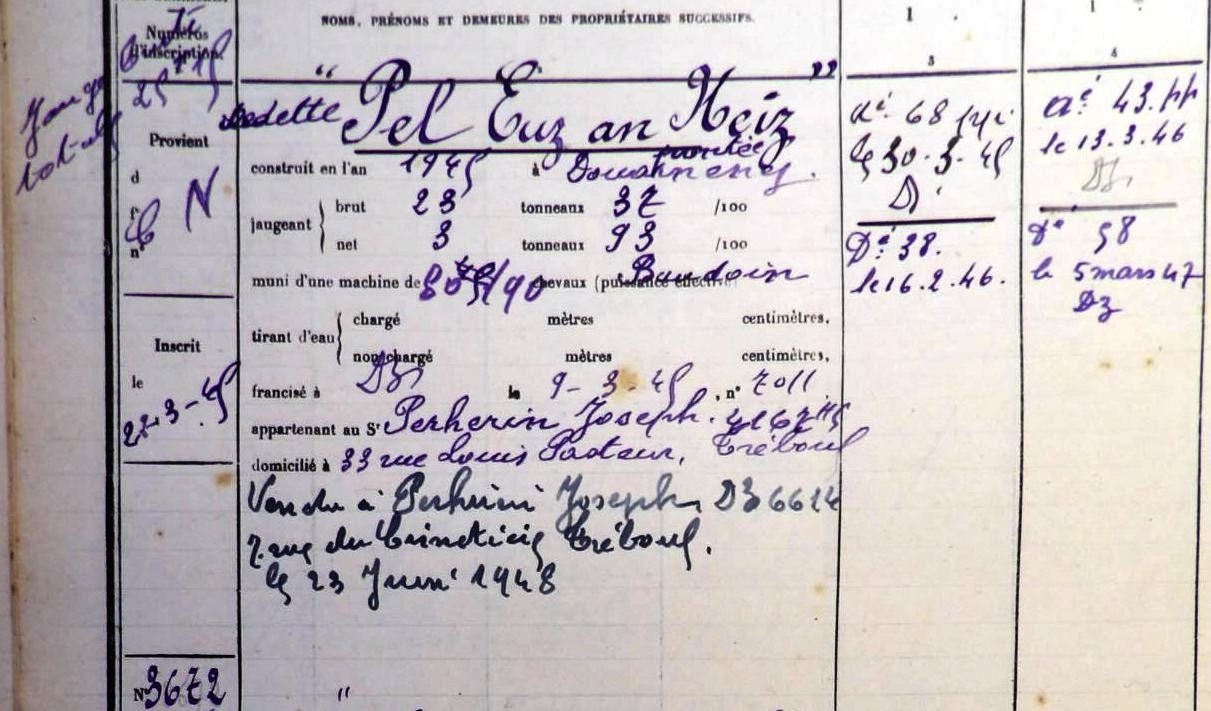 NOMS, PRÉNOMS ET DEMEURES DES PROPRIÉTAIRES SUCCESSIFS.
Numéros
d'inscription
Provient
d
N
n°
Inscrit
le
22-3-45
N° 3672
"
" Pel Euz an Neiz "
construit en l'an 1945 à Douarnenez.
pontée
jaugeant
brut 23 tonneaux 37 /100
net 3 tonneaux 93 /100
muni d'une machine de 90 chevaux (puissance effective) Baudoin
tirant d'eau
chargé mètres centimètres,
non chargé mètres centimètres,
francisé à DZ le 9-3-45, n° 7011
appartenant au Sr Perherin Joseph.
domicilié à 33 rue Louis Pasteur, Tréboul
Vendu à Joseph DZ 6624
7 rue du Tréboul.
le 23 Juin 1948
1
3
68
le 30-3-45
D
38.
le 16.2.46.
1
4
43.
le 13.3.46
DZ
58
le 5 mars 47
DZ